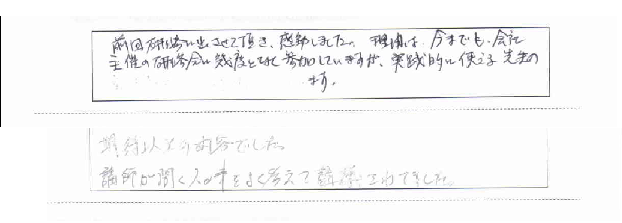 前回研修に出させて頂き、感動しました。理由は、今までも、会社
主催の研修会に幾度となく参加していますが、実践的に使える先生の
ます。
期待以上の内容でした。
講師が聞く人の事をよく考えて講演されてました。